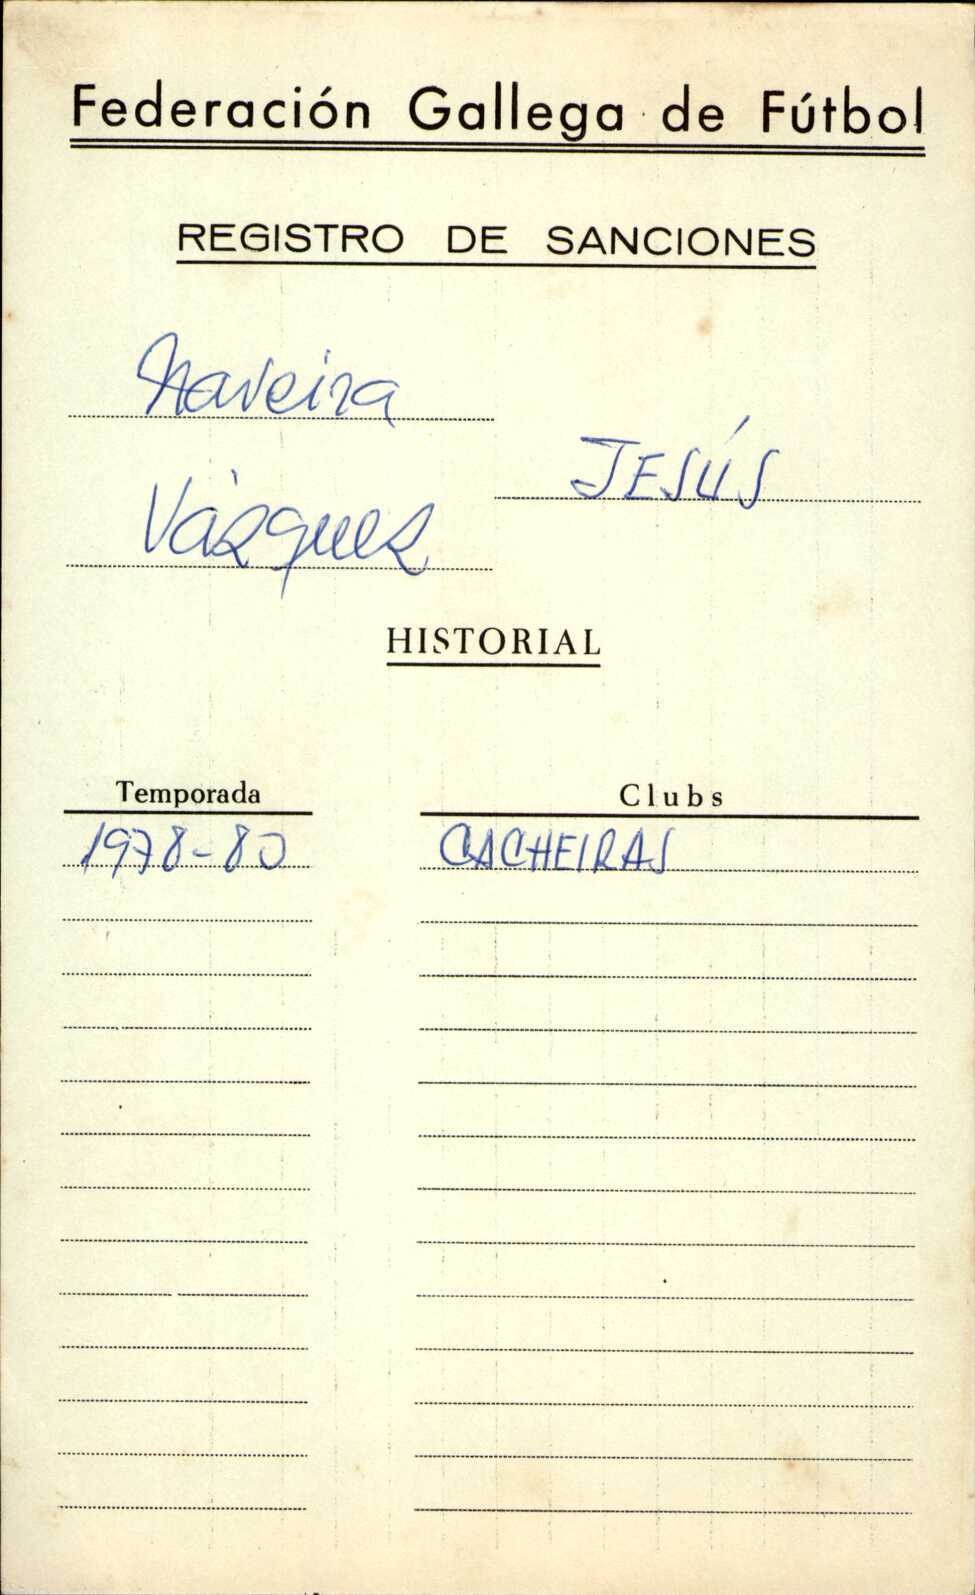 Federación Gallega de Fútbol
REGISTRO DE SANCIONES
Naveira
JESÚS
Vázquez
HISTORIAL
Temporada Clubs
1978-80 CACHEIRAS